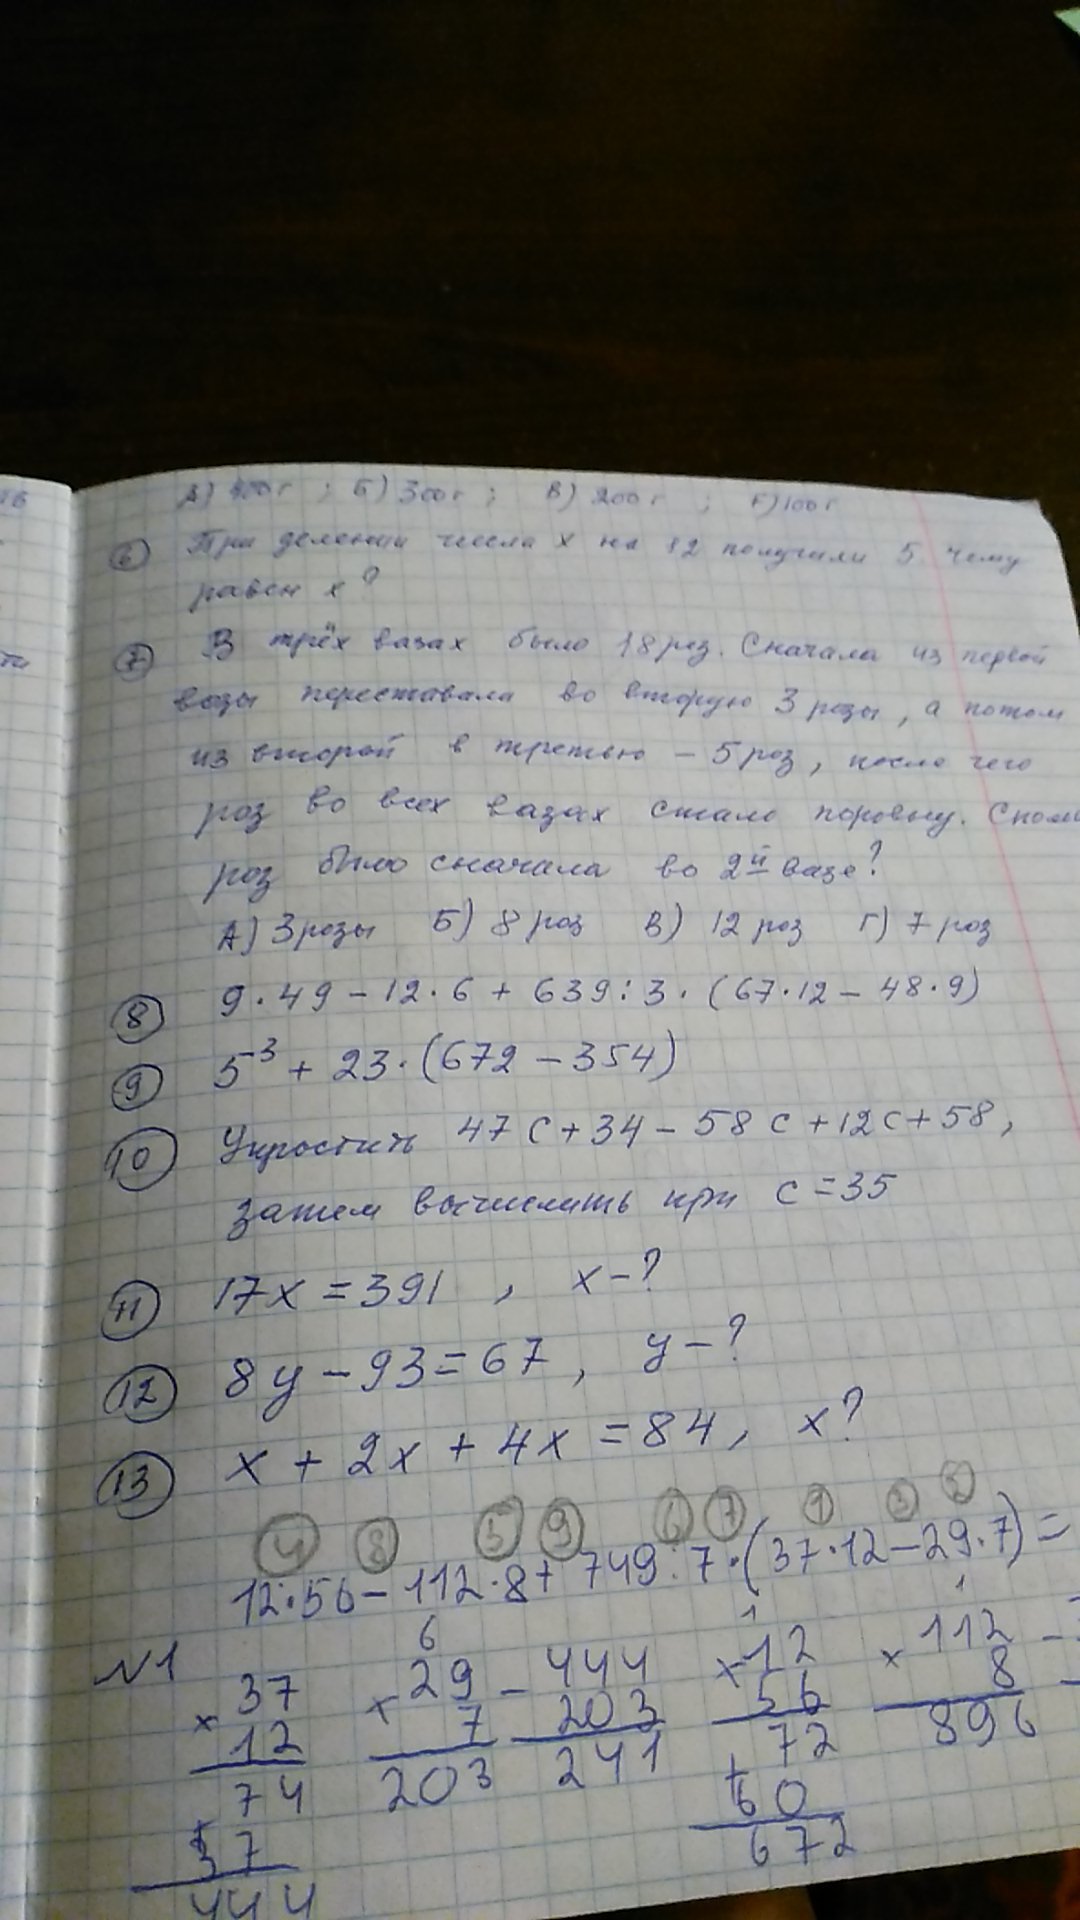 А) 400 г ; Б) 300 г ; В) 200 г ; Г) 100 г
6 При делении числа x на 12 получили 5. Чему
равен x?
7 В трёх вазах было 18 роз. Сначала из первой
вазы переставила во вторую 3 розы, а потом
из второй в третью – 5 роз, после чего
роз во всех вазах стало поровну.
роз было сначала во 2й вазе?
А) 3 розы Б) 8 роз В) 12 роз Г) 7 роз
8 9·49 – 12·6 + 639:3·(67·12 – 48·9)
9 5³ + 23·(672 – 354)
10 Упростить 47c + 34 – 58c + 12c + 58,
затем вычислить при c = 35
11 17x = 391 , x – ?
12 8y – 93 = 67 , y – ?
13 x + 2x + 4x = 84, x?
4 8 5 9 6 7 1 3 2
12·56 – 112·8 + 749:7·(37·12 – 29·7) =
6 1 1
N1 ×37 ×29 –444 ×12 ×112
12 7 203 56 8
74 203 241 72 896
+ +
37 60
444 672